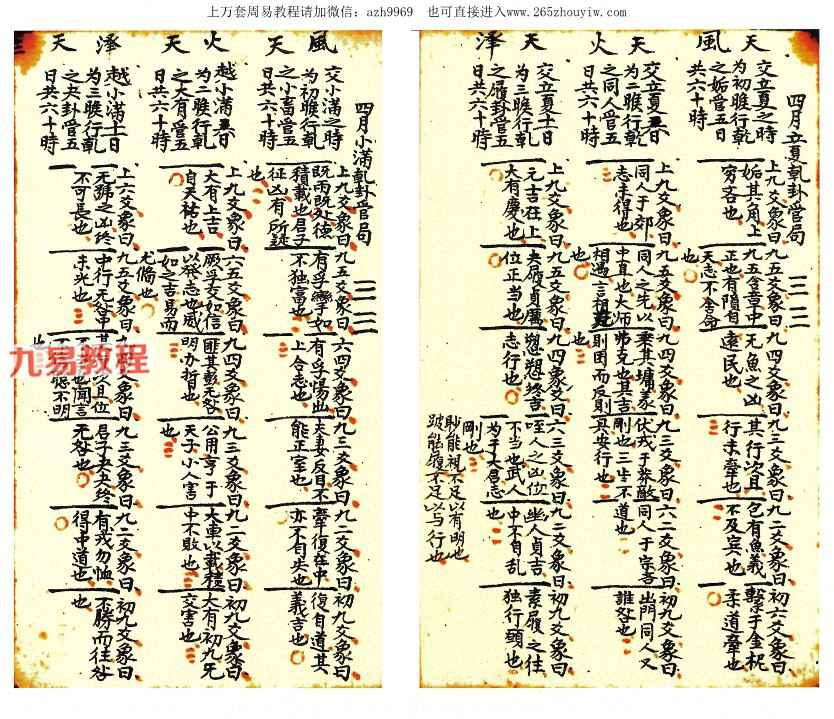 上万套周易教程请加微信：azh9969 也可直接进入www.265zhouyiw.com
四月立夏乾卦管局
天風
交立夏之時
為初候行乾
之姤管五日
共六十時
上九爻象曰
姤其角上
窮吝也
九五爻象曰
九五含章中
正也有隕自
天志不舍命
也
九四爻象曰
无魚之凶
遠民也
九三爻象曰
其行次且
行未牽也
九二爻象曰
包有魚義
不及賓也
初六爻象曰
繫于金柅
柔道牽也
天火
交立夏五日
為二候行乾
之同人管五
日共六十時
上九爻象曰
同人于郊
志未得也
九五爻象曰
同人之先以
中直也大师
相遇言相
也
九四爻象曰
乘其墉義
弗克也其吉
則困而反則
也
九三爻象曰
伏戎于莽敵
剛也三歲不
興安行也
六二爻象曰
同人于宗吝
道也
初九爻象曰
出門同人又
誰咎也
天澤
交立夏十日
為三候行乾
之履卦管五
日共六十時
上九爻象曰
元吉在上
大有慶也
九五爻象曰
夬履貞厲
位正当也
九四爻象曰
愬愬终吉
志行也
六三爻象曰
眇能視不足以有明也
跛能履不足以与行也
咥人之凶位
不当也武人
为于大君志
剛也
九二爻象曰
幽人貞吉
中不自乱
也
初九爻象曰
素履之往
独行願也
四月小滿乾卦管局
風天
交小滿之時
为初候行乾
之小畜管五
日共六十時
上九爻象曰
既雨既处德
積載也君子
征凶有所疑
也
九五爻象曰
有孚攣如
不独富也
六四爻象曰
有孚惕出
上合志也
九三爻象曰
夫妻反目不
能正室也
九二爻象曰
牽復在中
亦不自失也
初九爻象曰
復自道其
義吉也
火天
越小滿五日
为二候行乾
之大有管五
日共六十時
上九爻象曰
大有上吉
自天祐也
六五爻象曰
厥孚交如信
以發志也威
如之吉易而
无備也
九四爻象曰
匪其彭无咎
明亦晢也
九三爻象曰
公用亨于
天子小人害
也
九二爻象曰
大車以載積
中不敗也
初九爻象曰
大有初九无
交害也
澤天
越小滿十日
为三候行乾
之夬卦管五
日共六十時
上六爻象曰
无號之凶终
不可長也
九五爻象曰
中行无咎中
未光也
九四爻象曰
其行次且位
不当也闻言
不信聰不明
也
九三爻象曰
君子夬夬终
无咎也
九二爻象曰
有戎勿恤
得中道也
初九爻象曰
不勝而往咎
也
九易教程